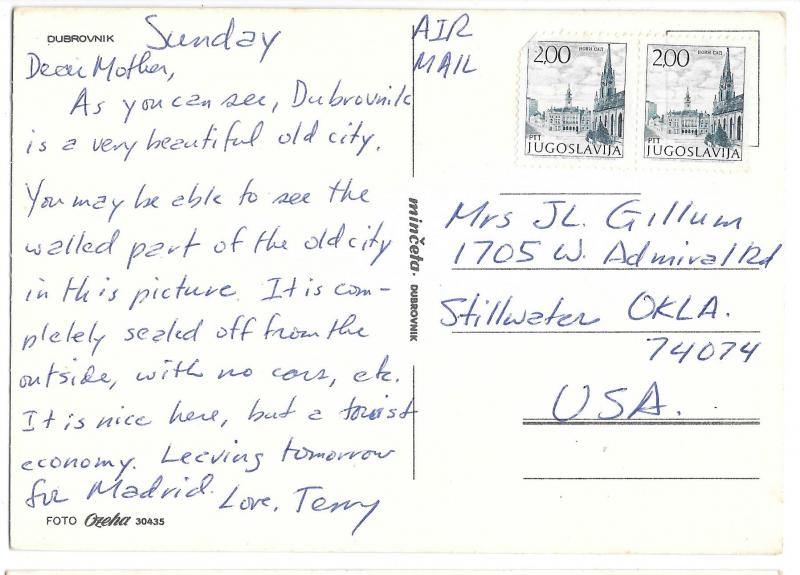 DUBROVNIK
Sunday
Dear Mother,
As you can see, Dubrovnik
is a very beautiful old city.
You may be able to see the
walled part of the old city
in this picture. It is com-
pletely sealed off from the
outside, with no cars, etc.
It is nice here, but a tourist
economy. Leaving tomorrow
for Madrid.
Love, Terry
FOTO Ozeha 30435
minčeta · DUBROVNIK
AIR
MAIL
2,00
PTT
JUGOSLAVIJA
2,00
PTT
JUGOSLAVIJA
Mrs JL. Gillum
1705 W. Admiral Rd
Stillwater OKLA.
74074
USA.